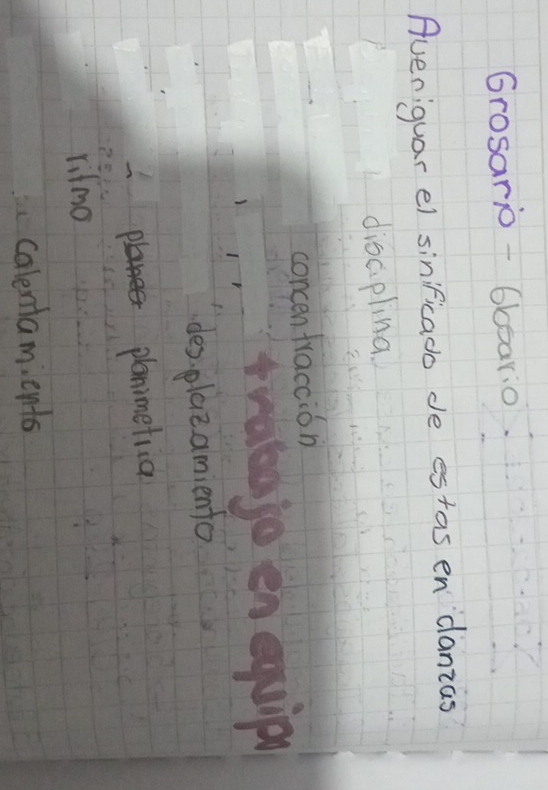 Grosario - Glosario.
Aveniguar el sinificado de estas en danzas
disciplina
concentracción
trabajo en equipo
desplazamiento
planimetria
ritmo
calentamiento